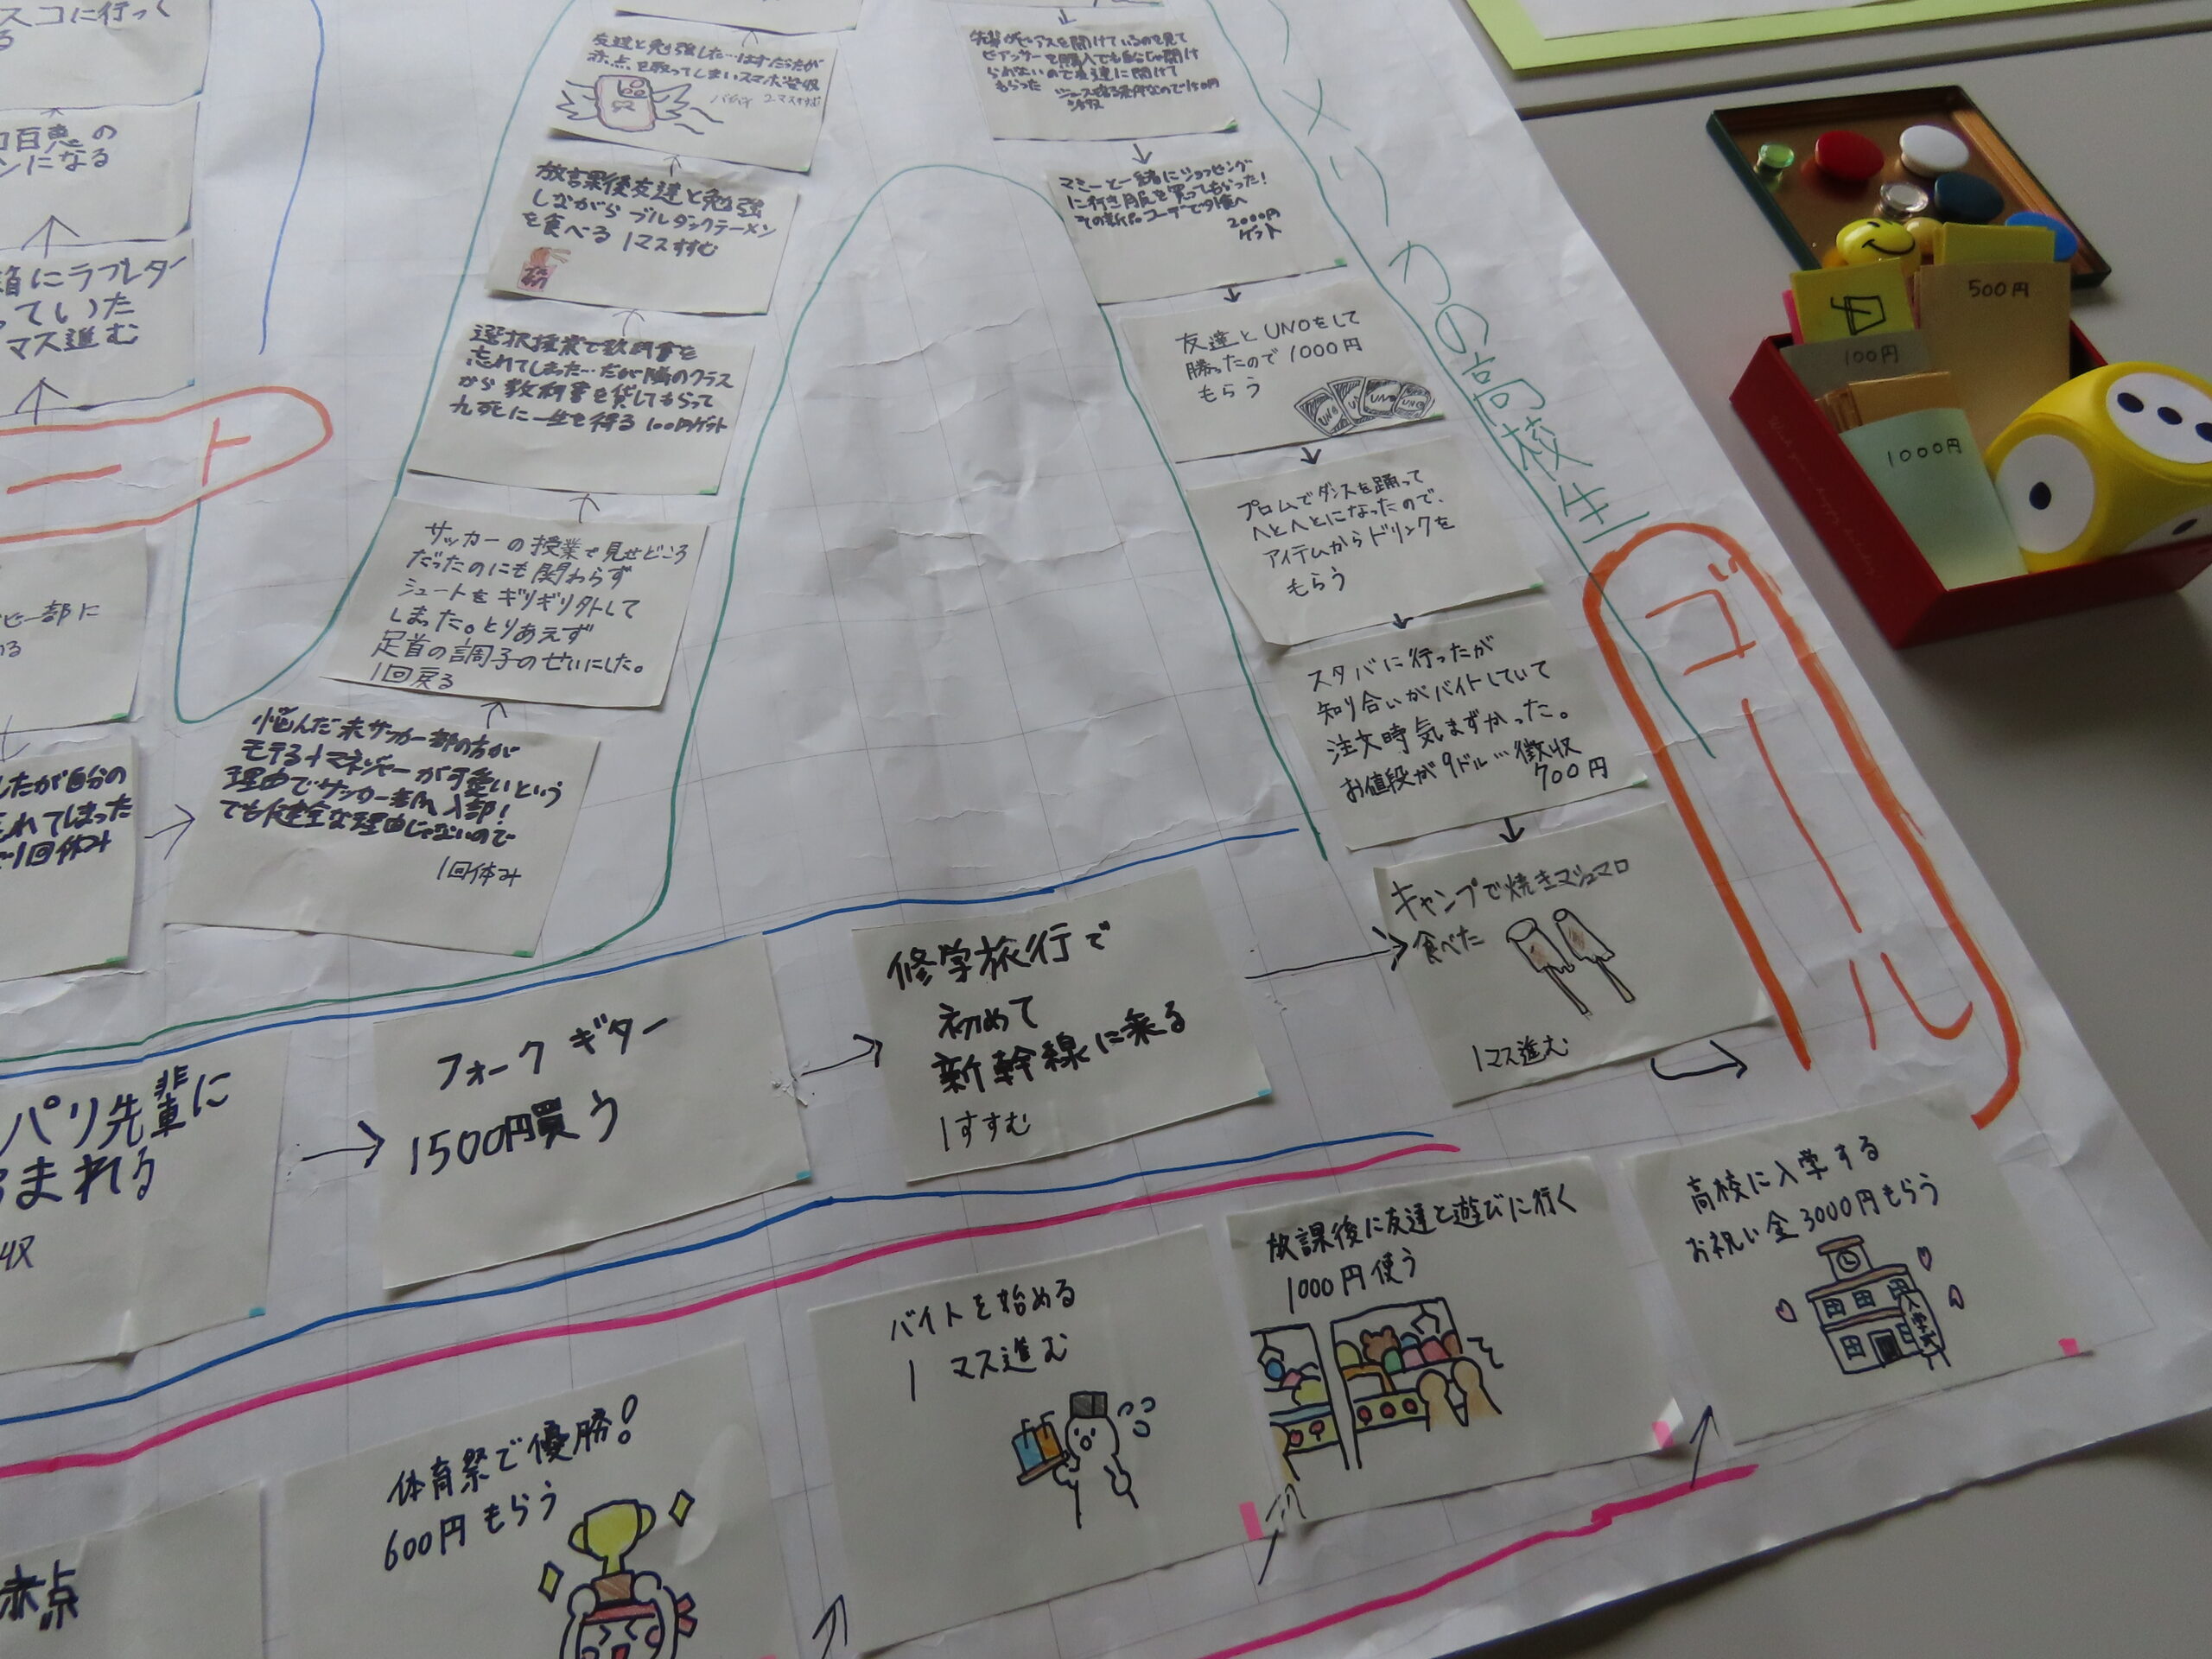 スコに行っく
る
口百恵の
ンになる
箱にラブレター
っていた
マス進む
ート
ビー部に
める
したが自分の
忘れてしまった
で1回休み
友達と勉強した…はずだったが
赤点を取ってしまいスマホ没収
2マスもどる
放課後友達と勉強
しながらブルダックラーメン
を食べる 1マスすすむ
選択授業で教科書を
忘れてしまった…だが隣のクラス
から教科書を貸してもらって
九死に一生を得る 100円ゲット
サッカーの授業で見せどころ
だったのにも関わらず
シュートをギリギリ外して
しまった。とりあえず
足首の調子のせいにした。
1回戻る
悩んだ末サッカー部の方が
モテる+マネージャーが可愛いという
理由でサッカー部入部!
でも健全な理由じゃないので
1回休み
先輩がピアスを開けているのを見て
ピアッサーを購入でも自分じゃ開け
られないので友達に開けて
もらった
150円
マミーと一緒にショッピング
に行き服を買ってもらった!
その新品コーデで外食へ
2000円
ゲット
友達とUNOをして
勝ったので1000円
もらう
UNO
プロムでダンスを踊って
へとへとになったので、
アイテムからドリンクを
もらう
スタバに行ったが
知り合いがバイトしていて
注文時気まずかった。
お値段が9ドル…徴収
700円
キャンプで焼きマシュマロ
食べた
1マス進む
メリカの高校生
ゴール
パリ先輩に
まれる
収
フォークギター
1500円買う
修学旅行で
初めて
新幹線に乗る
1すすむ
赤点
体育祭で優勝!
600円もらう
バイトを始める
1マス進む
放課後に友達と遊びに行く
1000円使う
高校に入学する
お祝い金3000円もらう
入学式
500円
100円
1000円